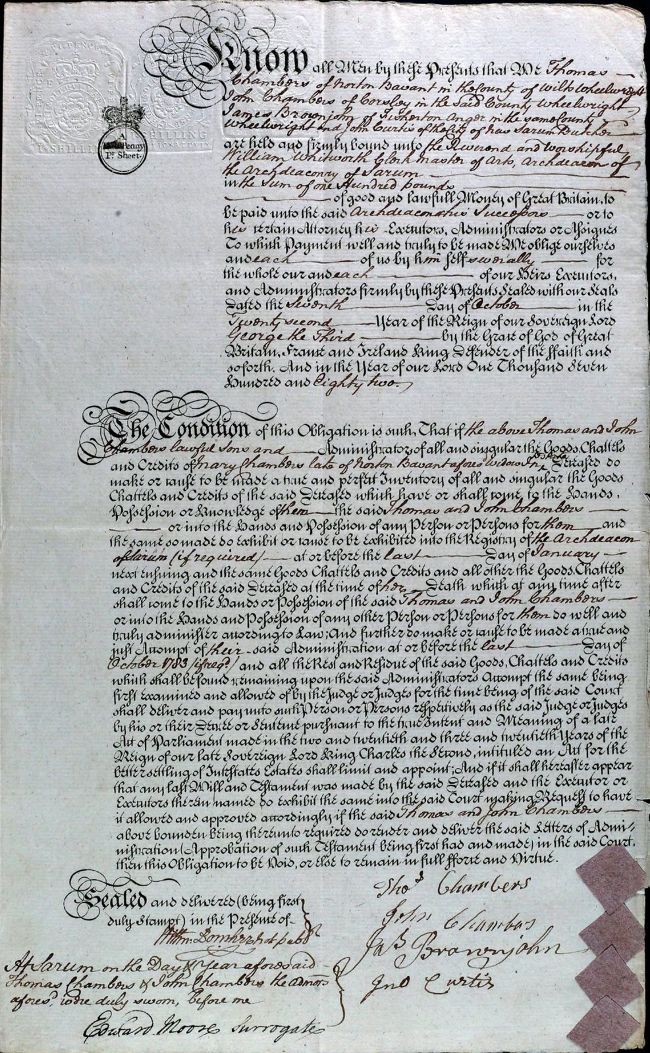 Know all Men by these Presents that We Thomas
Chambers of Norton Bavant in the County of Wilts Wheelwright
John Chambers of Corsley in the Said County Wheelwright
James Brownjohn of Fisherton Anger in the same County
Wheelwright and John Curtis of the City of New Sarum Butcher
are held and firmly bound unto the Reverend and worshipful
William Whitworth Clerk Master of Arts, Archdeacon of
the Archdeaconry of Sarum
in the Sum of One Hundred Pounds
of good and lawfull Money of Great Britain, to
be paid unto the said Archdeacon his Successors or to
his certain Attorney his Executors, Administrators or Assignes
To which Payment well and truly to be made We oblige ourselves
and each of us by himself severally for
the whole our and each of our Heirs Executors,
and Administrators firmly by these Presents Sealed with our Seals
Dated the Seventh Day of October in the
Twenty second Year of the Reign of our Sovereign Lord
George the Third by the Grace of God of Great
Britain, France and Ireland King Defender of the Ffaith and
soforth. And in the Year of our Lord One Thousand Seven
Hundred and Eighty two.
A
Penny
Pr. Sheet.
The Condition of this Obligation is such, That if the above Thomas and John
Chambers lawful Sons and Administrators of all and singular the Goods, Chattels
and Credits of Mary Chambers late of Norton Bavant afores. widow Deceased do
make or cause to be made a true and perfect Inventory of all and singular the Goods
Chattels and Credits of the said Deceased which have or shall come to the Hands,
Possession or Knowledge of them the said Thomas and John Chambers
or into the Hands and Possession of any Person or Persons for them and
the same so made do exhibit or cause to be exhibited into the Registry of the Archdeacon
of Sarum (if required) at or before the last Day of January
next ensuing and the same Goods Chattels and Credits and all other the Goods, Chattels
and Credits of the said Deceased at the time of her Death which at any time after
shall come to the Hands or Possession of the said Thomas and John Chambers
or into the Hands and Possession of any other Person or Persons for them do well and
truly administer according to Law; And further do make or cause to be made a true and
just Accompt of their said Administration at or before the last Day of
October 1783 (if reqd.) and all the Rest and Residue of the said Goods, Chattels and Credits
which shall be found remaining upon the said Administrators Accompt the same being
first examined and allowed of by the Judge or Judges for the time being of the said Court
shall deliver and pay unto such Person or Persons respectively as the said Judge or Judges
by his or their Decree or Sentence pursuant to the true Intent and Meaning of a late
Act of Parliament made in the two and twentieth and three and twentieth Years of the
Reign of our late Sovereign Lord King Charles the Second, intituled an Act for the
better settling of Intestates Estates shall limit and appoint; And if it shall hereafter appear
that any last Will and Testament was made by the said Deceased and the Executor or
Executors therein named do exhibit the same into the said Court making Request to have
it allowed and approved accordingly if the said Thomas and John Chambers
above bounden being thereunto required do render and deliver the said Letters of Admi-
nistration (Approbation of such Testament being first had and made) in the said Court,
then this Obligation to be Void, or else to remain in full fforce and Virtue.
Sealed and delivered (being first
duly Stampt) in the Presence of
Thos. Chambers
John Chambers
Jas Brownjohn
Jno Curtis
At Sarum on the Day & Year aforesaid
Thomas Chambers & John Chambers the admors
afores.d were duly sworn, before me
Edward Moore Surrogate